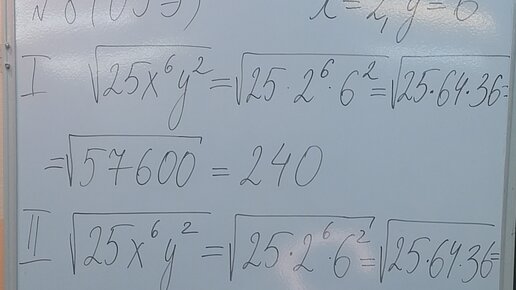 №8 (ОГЭ) x=2, y=6
I √25x⁶y² = √25·2⁶·6² = √25·64·36 =
= √57600 = 240
II √25x⁶y² = √25·2⁶·6² = √25·64·36 =